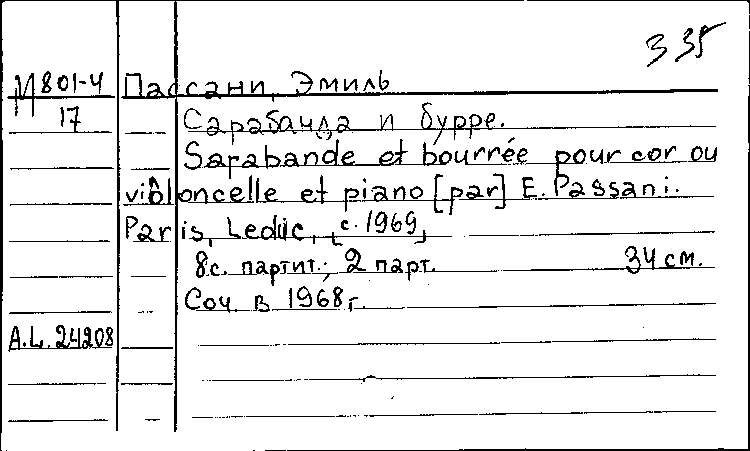 335
М801-4 Пассани, Эмиль
17 Сарабанда и бурре.
Sarabande et bourrée pour cor ou
violoncelle et piano [par] E. Passani.
Paris, Leduc, [c. 1969]
8с. партит.; 2 парт. 34 см.
Соч. в 1968г.
A.L. 24208